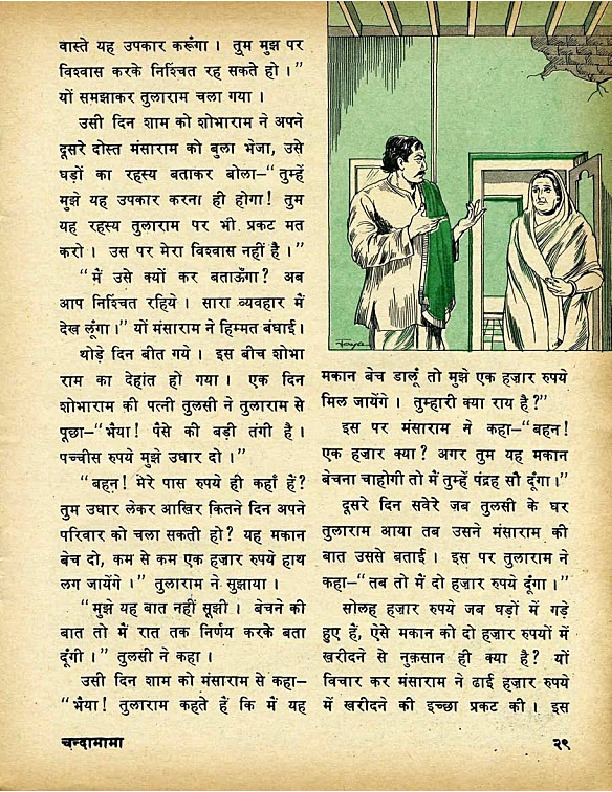 वास्ते यह उपकार करूँगा । तुम मुझ पर
विश्वास करके निश्चित रह सकते हो ।”
यों समझाकर तुलाराम चला गया ।
उसी दिन शाम को शोभाराम ने अपने
दूसरे दोस्त मंसाराम को बुला भेजा, उसे
घड़ों का रहस्य बताकर बोला–“तुम्हें
मुझे यह उपकार करना ही होगा! तुम
यह रहस्य तुलाराम पर भी प्रकट मत
करो । उस पर मेरा विश्वास नहीं है ।”
“मैं उसे क्यों कर बताऊँगा? अब
आप निश्चित रहिये । सारा व्यवहार में
देख लूंगा ।” यों मंसाराम ने हिम्मत बंधाई ।
थोड़े दिन बीत गये । इस बीच शोभा
राम का देहांत हो गया । एक दिन
शोभाराम की पत्नी तुलसी ने तुलाराम से
पूछा–“भैया! पैसे की बड़ी तंगी है ।
पच्चीस रुपये मुझे उधार दो ।”
“बहन! मेरे पास रुपये ही कहाँ हैं?
तुम उधार लेकर आखिर कितने दिन अपने
परिवार को चला सकती हो? यह मकान
बेच दो, कम से कम एक हज़ार रुपये हाथ
लग जायेंगे ।” तुलाराम ने सुझाया ।
“मुझे यह बात नहीं सूझी । बेचने की
बात तो मैं रात तक निर्णय करके बता
दूंगी ।” तुलसी ने कहा ।
उसी दिन शाम को मंसाराम से कहा–
“भैया! तुलाराम कहते हैं कि मैं यह
मकान बेच डालूं तो मुझे एक हज़ार रुपये
मिल जायेंगे । तुम्हारी क्या राय है?”
इस पर मंसाराम ने कहा–“बहन!
एक हज़ार क्या? अगर तुम यह मकान
बेचना चाहोगी तो में तुम्हें पंद्रह सौ दूँगा ।”
दूसरे दिन सवेरे जब तुलसी के घर
तुलाराम आया तब उसने मंसाराम की
बात उससे बताई । इस पर तुलाराम ने
कहा–“तब तो मैं दो हज़ार रुपये दूंगा ।”
सोलह हज़ार रुपये जब घड़ों में गड़े
हुए हैं, ऐसे मकान को दो हज़ार रुपयों में
खरीदने से नुक़सान ही क्या है? यों
विचार कर मंसाराम ने ढाई हज़ार रुपये
में खरीदने की इच्छा प्रकट की । इस
चन्दामामा
२९